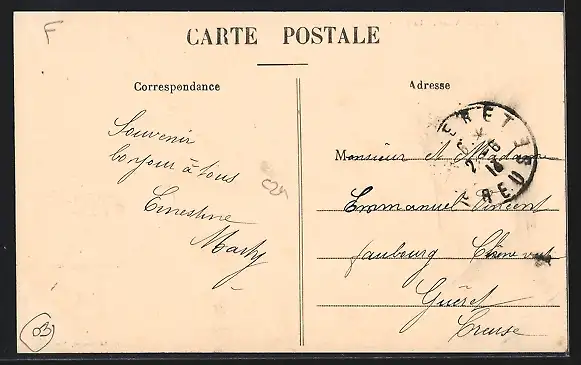 F
CARTE POSTALE
Correspondance
Adresse
Souvenir
bonjour à tous
Ernestine
Marty
C25
03
GUERET
CREUSE
2-6
18
Monsieur et Madame
Emmanuel Vincent
faubourg Chêne vert
Guéret
Creuse